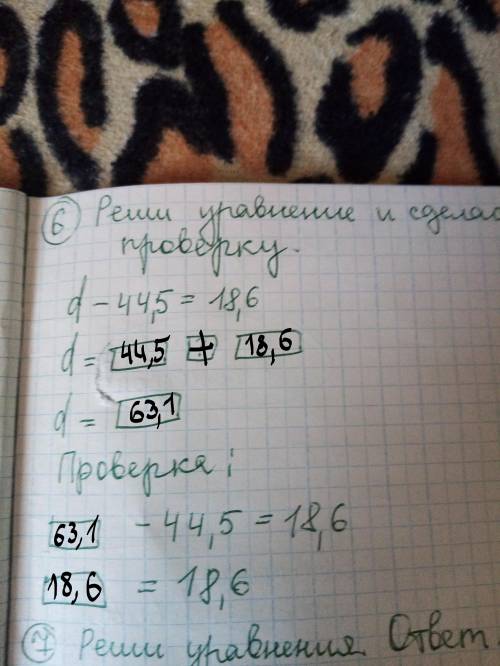 6 Реши уравнение и сделай
проверку.
d - 44,5 = 18,6
d = 44,5 + 18,6
d = 63,1
Проверка:
63,1 - 44,5 = 18,6
18,6 = 18,6
7 Реши уравнения. Ответ